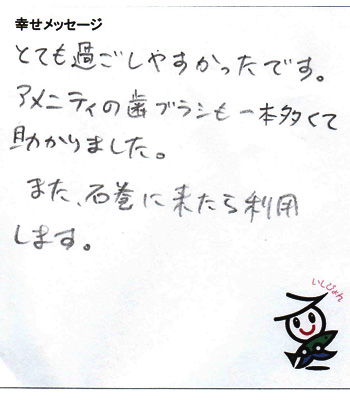 幸せメッセージ
とても過ごしやすかったです。
アメニティの歯ブラシも一本多くて
助かりました。
また、石巻に来たら利用
します。
いしぴょん